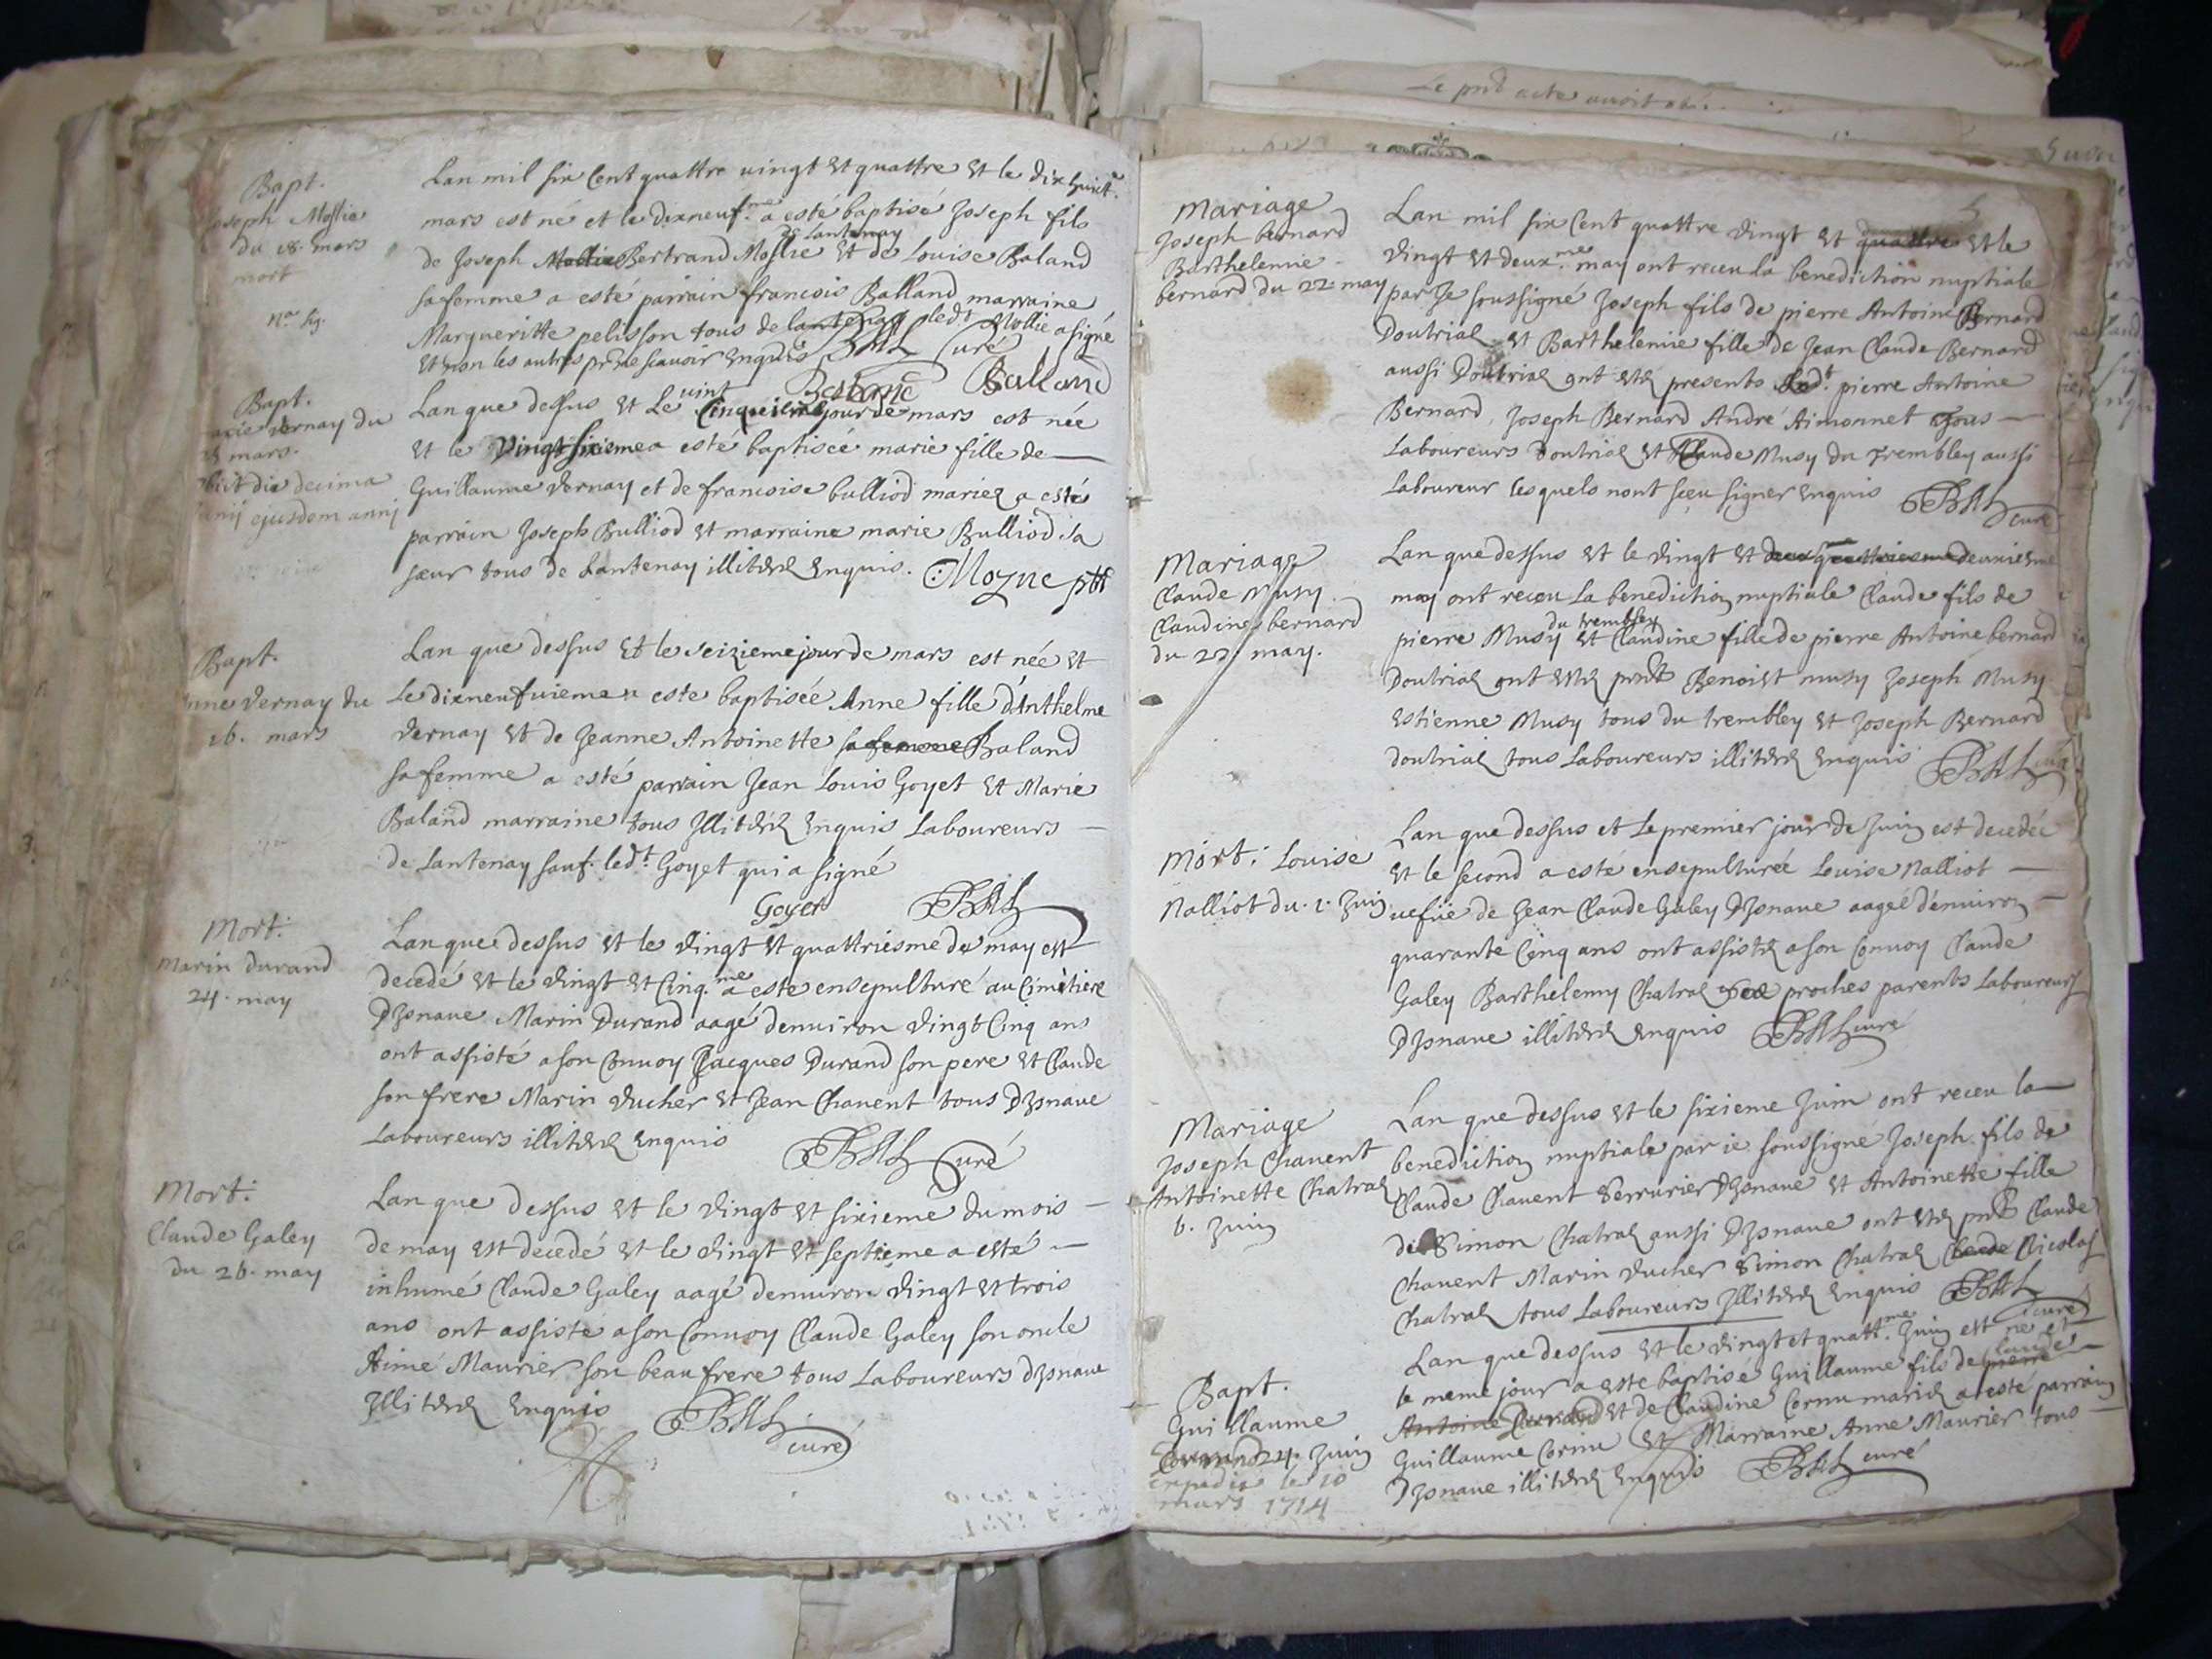 Bapt.
Joseph Mollie
du 18. mars
mort
Lan mil six Cent quattre vingt et quattre et le dix huict.e
mars est né et le dixneuf.me a esté baptisé Joseph fils
de Lantenay
de Joseph Mollie Bertrand Mollie et de Louise Baland
sa femme a esté parrain francois Balland marraine
Margueritte pelisson tous de lantenay ledt Mollie a signé
et non les autres pr ne scavoir enquis Curé
Balland
Bapt.
marie vernay du
25 mars.
obiit die decima
junij ejusdem annj
vint
Lan que dessus et Le Cinquieme jour de mars est née
et le vingt sixieme a esté baptiseé marie fille de
Guillaume vernay et de francoise bulliod mariez a esté
parrain Joseph Bulliod et marraine marie Bulliod sa
sœur tous de Lantenay illiterez enquis. Moyne ptr
Bapt.
anne vernay du
16. mars
Lan que dessus et le seizieme jour de mars est née et
Le dixneufvieme a este baptisée Anne fille d'Anthelme
vernay et de Jeanne Antoinette sa femme Baland
sa femme a esté parrain Jean Louis Goyet et Marie
Baland marraine tous Illiterez enquis Laboureurs
de Lantenay sauf. ledt. Goyet qui a signé
Goyet
Mort:
marin durand
24. may
Lan que dessus et le vingt et quattriesme de may est
decedé et le vingt et Cinq.me a este ensepulturé au Cimètiere
Dizonave Marin Durand aagé denuiron vingt Cinq ans
ont assisté a son Convoy Jacques Durand son pere et Claude
son frere Marin vucher et Jean Chanent tous Dizonave
Laboureurs illiterez enquis
Curé
Mort:
Claude Galey
du 26. may
Lan que dessus et le vingt et sixieme du mois
de may est decedé et le vingt et septieme a esté
inhumé Claude Galey aagé denuiron vingt et trois
ans ont assisté a son Convoy Claude Galey son oncle
Aimé Maurier son beau frere tous Laboureurs dizonave
Illiterez enquis
curé
Le pnt acte avoit
mariage
Joseph bernard
Barthelemie
bernard du 22 may
Lan mil six Cent quattre vingt et quattre et le
vingt et deux.me may ont receu la benediction nuptiale
par Je soussigné Joseph fils de pierre Antoine Bernard
Doutriaz et Barthelemie fille de Jean Claude Bernard
aussi Doutriaz ont etez presents Ledt. pierre Antoine
Bernard, Joseph Bernard André Aimonnet Tous
Laboureurs doutriaz et Claude Musy du Trembley aussi
Laboureur lesquels nont sceu signer enquis
curé
Mariage
Claude Musy
Claudine bernard
du 22. may.
Lan que dessus et le vingt et deuxiesme
may ont receu La benediction nuptiale Claude fils de
du trembley
pierre Musy et Claudine fille de pierre Antoine bernard
Doutriaz ont etez pnts Benoist musy Joseph Musy
Estienne Musy tous du trembley et Joseph Bernard
doutriaz tous Laboureurs illiterez enquis
curé
Mort: Louise
Nalliot du. 1. Juin
Lan que dessus et Le premier jour de Juin est decedée
et le second a esté ensepulturée Louise Nalliot
uefue de Jean Claude Galey Dizonave aageé dénuiron
quarante Cinq ans ont assistez a son Convoy Claude
Galey Barthelemy Chatraz proches parents Laboureurs
Dizonave illiterez enquis
curé
Mariage
Joseph Chanent
Antoinette Chatraz
6. Juin
Lan que dessus et le sixieme Juin ont receu la
benediction nuptiale par ie soussigné Joseph fils de
Claude Chanent serrurier Dizonave et Antoinette fille
de Simon Chatraz aussi Dizonave ont etez pnts Claude
Chanent Marin vucher Simon Chatraz Claude Nicolas
Chatraz tous Laboureurs Illiterez enquis
curé
Bapt.
Guillaume
24. Juin
expedié le 10
mars 1714
Lan que dessus et le vingt et quatt.me Juin est né et
claude
le meme jour a este baptisé Guillaume fils de pierre
Antoine Durand et de Claudine Cornu mariez a esté parrain
Guillaume Cornu et Marraine Anne Maurier tous
Dizonave illiterez enquis curé